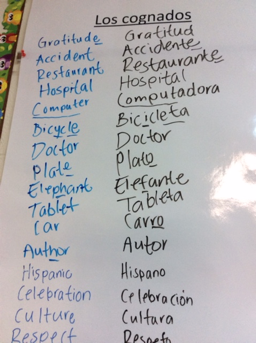 Los cognados
Gratitude Gratitud
Accident Accidente
Restaurant Restaurante
Hospital Hospital
Computer Computadora
Bicycle Bicicleta
Doctor Doctor
Plate Plato
Elephant Elefante
Tablet Tableta
Car Carro
Author Autor
Hispanic Hispano
Celebration Celebración
Culture Cultura
Respect Respeto